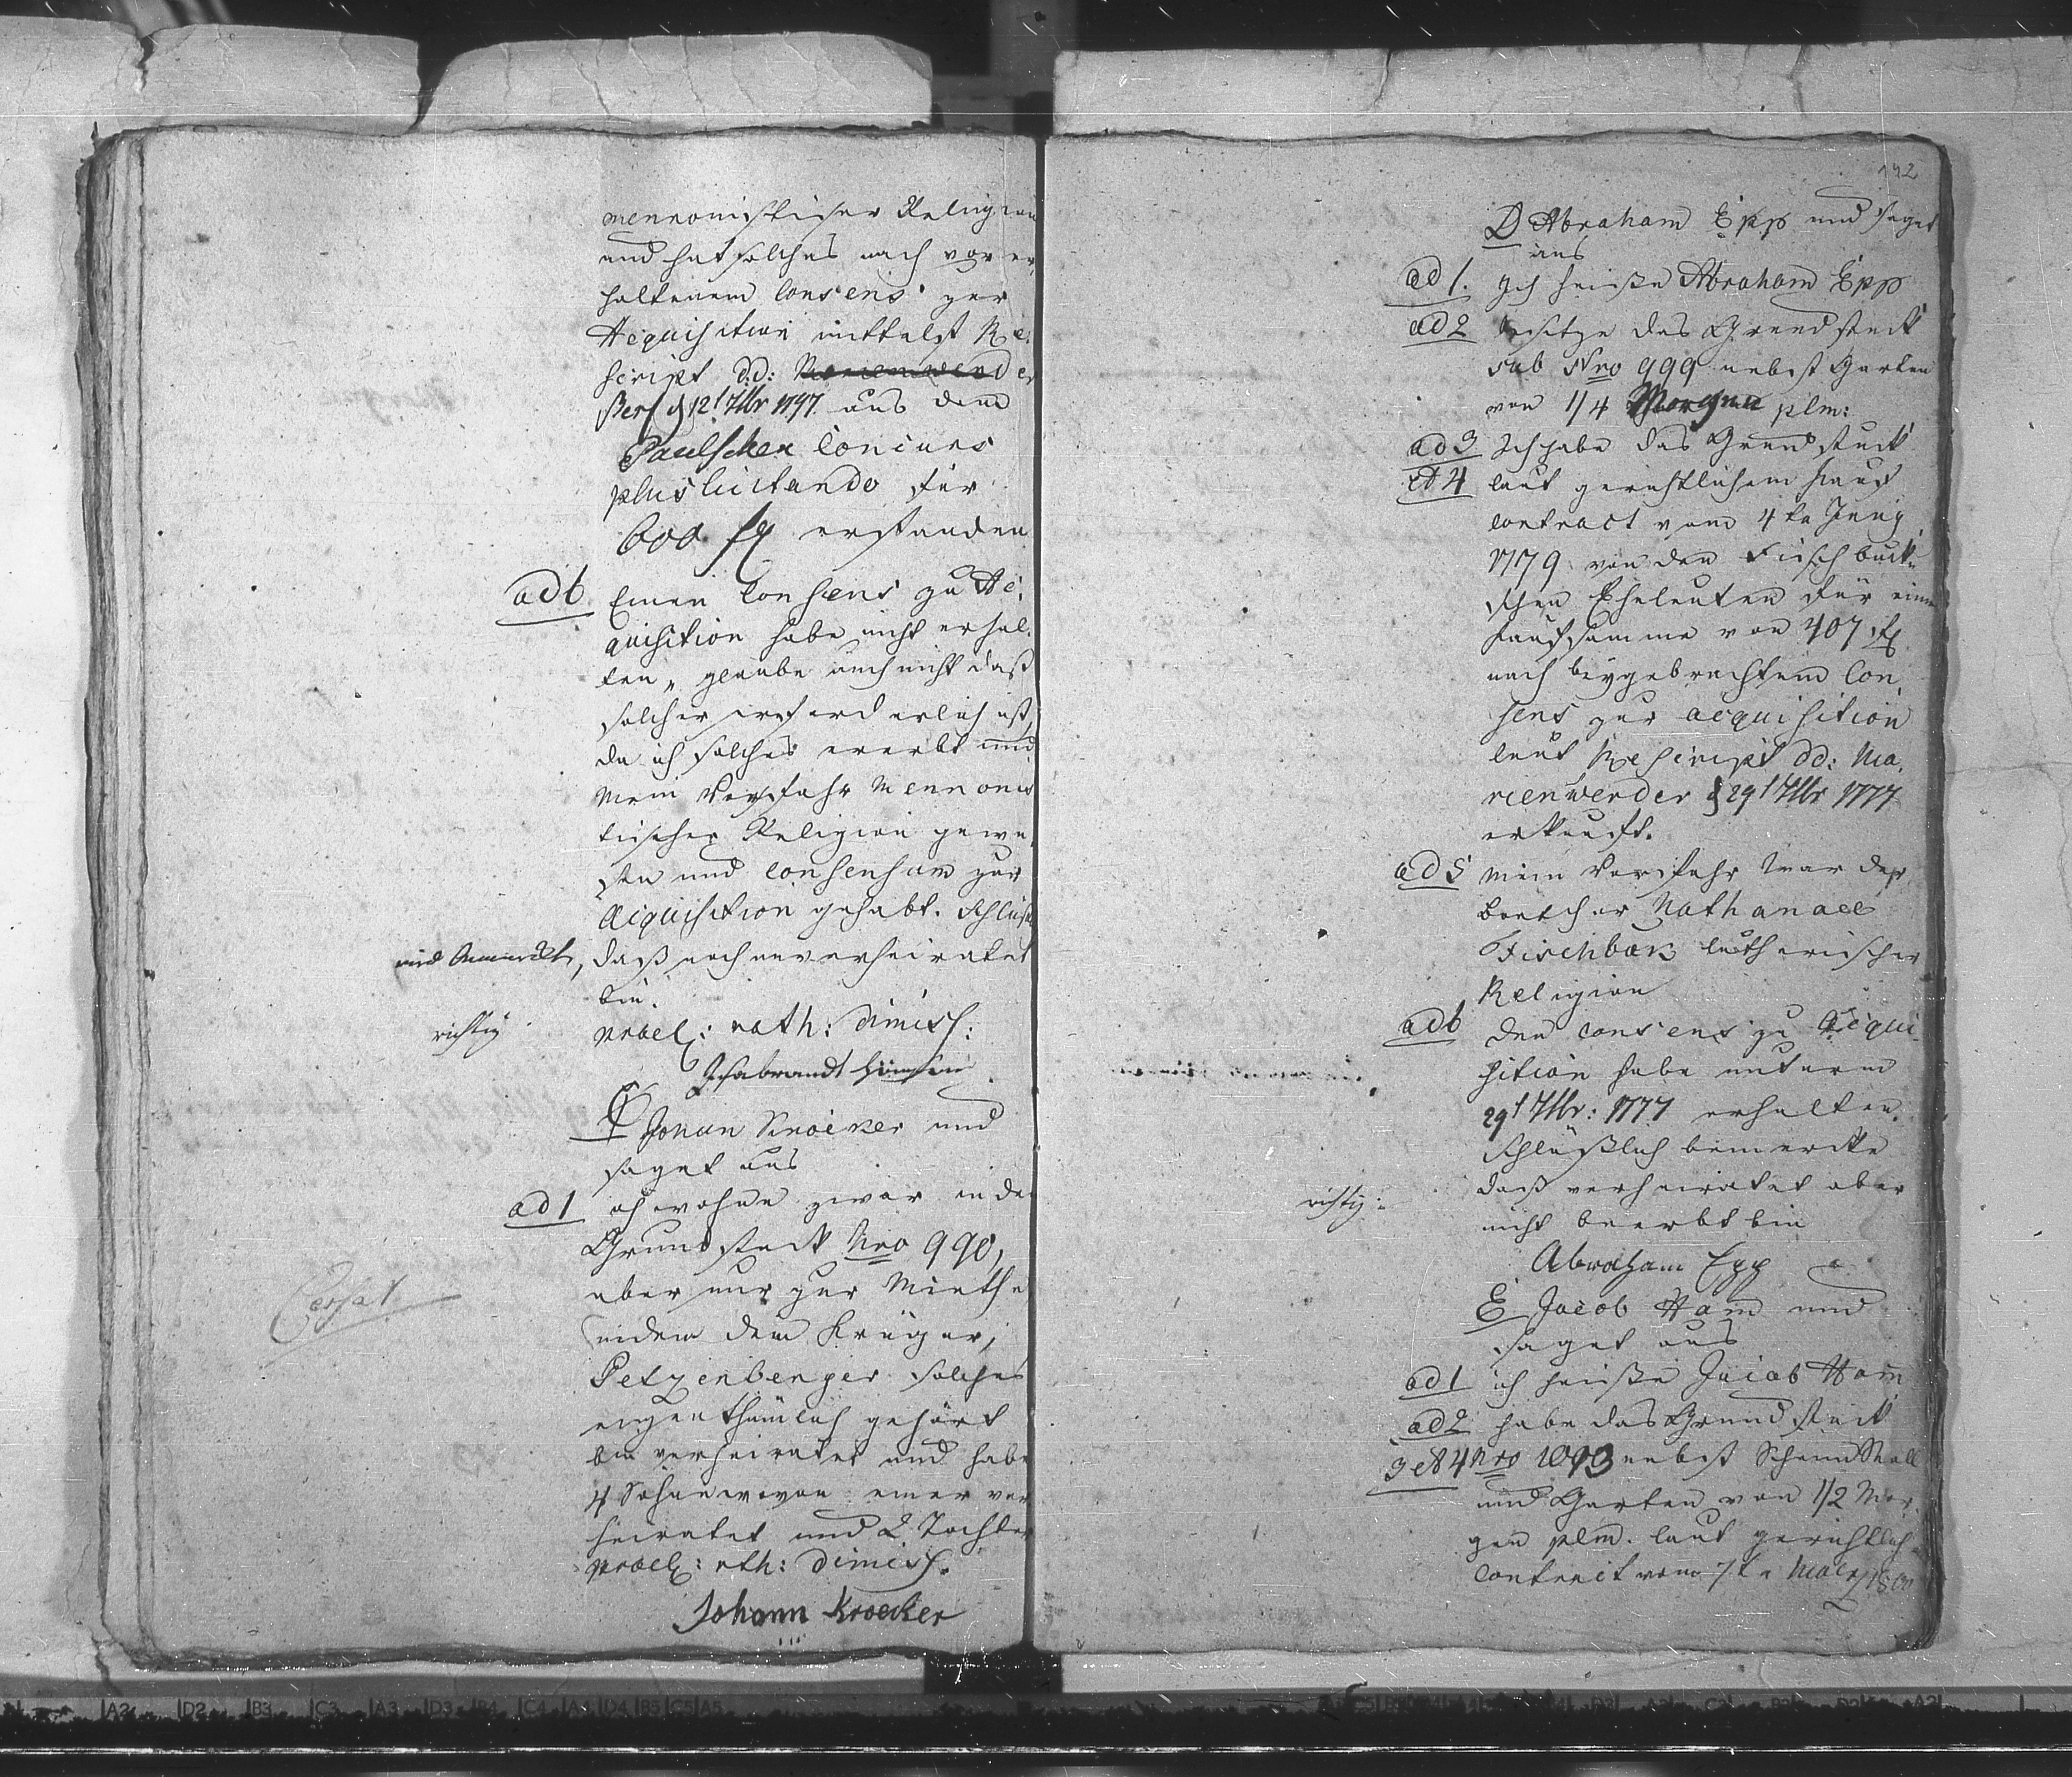 mennonistischer Religion
und hat solches nach vor er
haltenem Consens zur
Acquisition mittelst Re
script d.d: Marienwerder
12t 7br 1797 aus dem
Paulschen Concurs
plus licitando für
600 f erstanden
ad 6 Einen Consens zu Ac
quisition habe nicht erhal
ten, glaube auch nicht daß
solcher erforderlich ist,
da ich solches ererbt und
mein Vorfahr Mennonis
tischer Religion gewe
sen und Consensum zur
Acquisition gehabt.
daß noch unverheiratet
bin.
richtig
prael: rath: dimiss:
C Johan Kroeker und
saget aus
ad 1 ich wohne zwar in dem
Grundstück Nro 990,
aber nur zur Miethe
indem dem Krüger,
Petzenberger solches
eigenthümlich gehört
bin verheiratet und habe
4 Söhne wovon einer ver
heiratet und 2 Töchter
prael: rth: dimiss.
Cessat
Johann Kroecker
142
D Abraham Epp und saget
aus
ad 1. Ich heiße Abraham Epp
ad 2 besitze das Grundstück
sub Nro 999 nebst Garten
von 1/4 Morgen plm:
ad 3 Ich habe das Grundstück
et 4 laut gerichtlichem Kauf
contract vom 4 ta Juny
1779 von den Fischback
schen Eheleuten für eine
Kaufsumme von 407 f
nach beygebrachtem Con
sens zur acquisition
laut Rescript dd: Ma
rienwerder d 29t 7br 1777
erkauft.
ad 5 mein Vorfahr war der
Boetcher Nathanael
Fischback lutherischer
Religion
ad 6 den Consens zu Acqui
sition habe unterm
29t 7br: 1777 erhalten.
Schlüßlich bemercke
daß verheiratet aber
richtig:
nicht beerbt bin
Abraham Epp
E Jacob Ham und
saget aus
ad 1 ich heiße Jacob Ham
ad 2 habe das Grundstück
3 et 4 Nro 1093 nebst Stall
und Garten von 1/2 Mor
gen plm. laut gerichtlich
Contract vom 7t